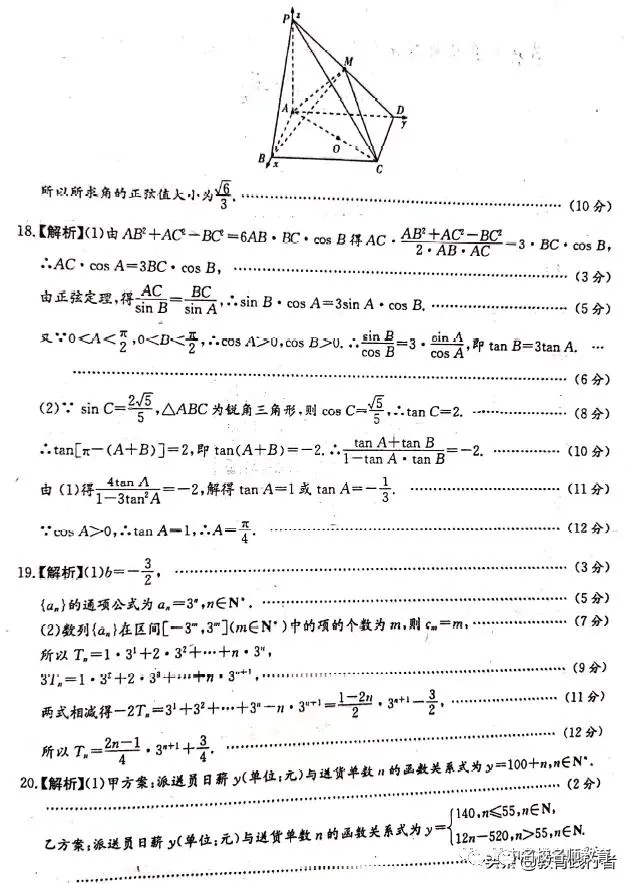 P z
M
A D
y
O
B x C
所以所求角的正弦值大小为√6/3. (10分)
18.【解析】(1)由AB²+AC²-BC²=6AB·BC·cos B得AC·(AB²+AC²-BC²)/(2·AB·AC)=3·BC·cos B,
∴AC·cos A=3BC·cos B, (3分)
由正弦定理,得AC/sin B=BC/sin A,∴sin B·cos A=3sin A·cos B. (5分)
又∵0<A<π/2,0<B<π/2,∴cos A>0,cos B>0.∴sin B/cos B=3·sin A/cos A,即tan B=3tan A. …
(6分)
(2)∵ sin C=2√5/5,△ABC为锐角三角形,则cos C=√5/5,∴tan C=2. (8分)
∴tan[π-(A+B)]=2,即tan(A+B)=-2.∴(tan A+tan B)/(1-tan A·tan B)=-2. (10分)
由(1)得4tan A/(1-3tan²A)=-2,解得tan A=1或tan A=-1/3. (11分)
∵cos A>0,∴tan A=1,∴A=π/4. (12分)
19.【解析】(1)b=-3/2, (3分)
{aₙ}的通项公式为aₙ=3ⁿ,n∈N*. (5分)
(2)数列{aₙ}在区间[-3ᵐ,3ᵐ](m∈N*)中的项的个数为m,则cₘ=m, (7分)
所以Tₙ=1·3¹+2·3²+…+n·3ⁿ,
3Tₙ=1·3²+2·3³+…+n·3ⁿ⁺¹, (9分)
两式相减得-2Tₙ=3¹+3²+…+3ⁿ-n·3ⁿ⁺¹=(1-2n)/2·3ⁿ⁺¹-3/2, (11分)
所以Tₙ=(2n-1)/4·3ⁿ⁺¹+3/4. (12分)
20.【解析】(1)甲方案:派送员日薪y(单位:元)与送货单数n的函数关系式为y=100+n,n∈N*.
(2分)
乙方案:派送员日薪y(单位:元)与送货单数n的函数关系式为y={140,n≤55,n∈N,
12n-520,n>55,n∈N.
头条@教育践行者